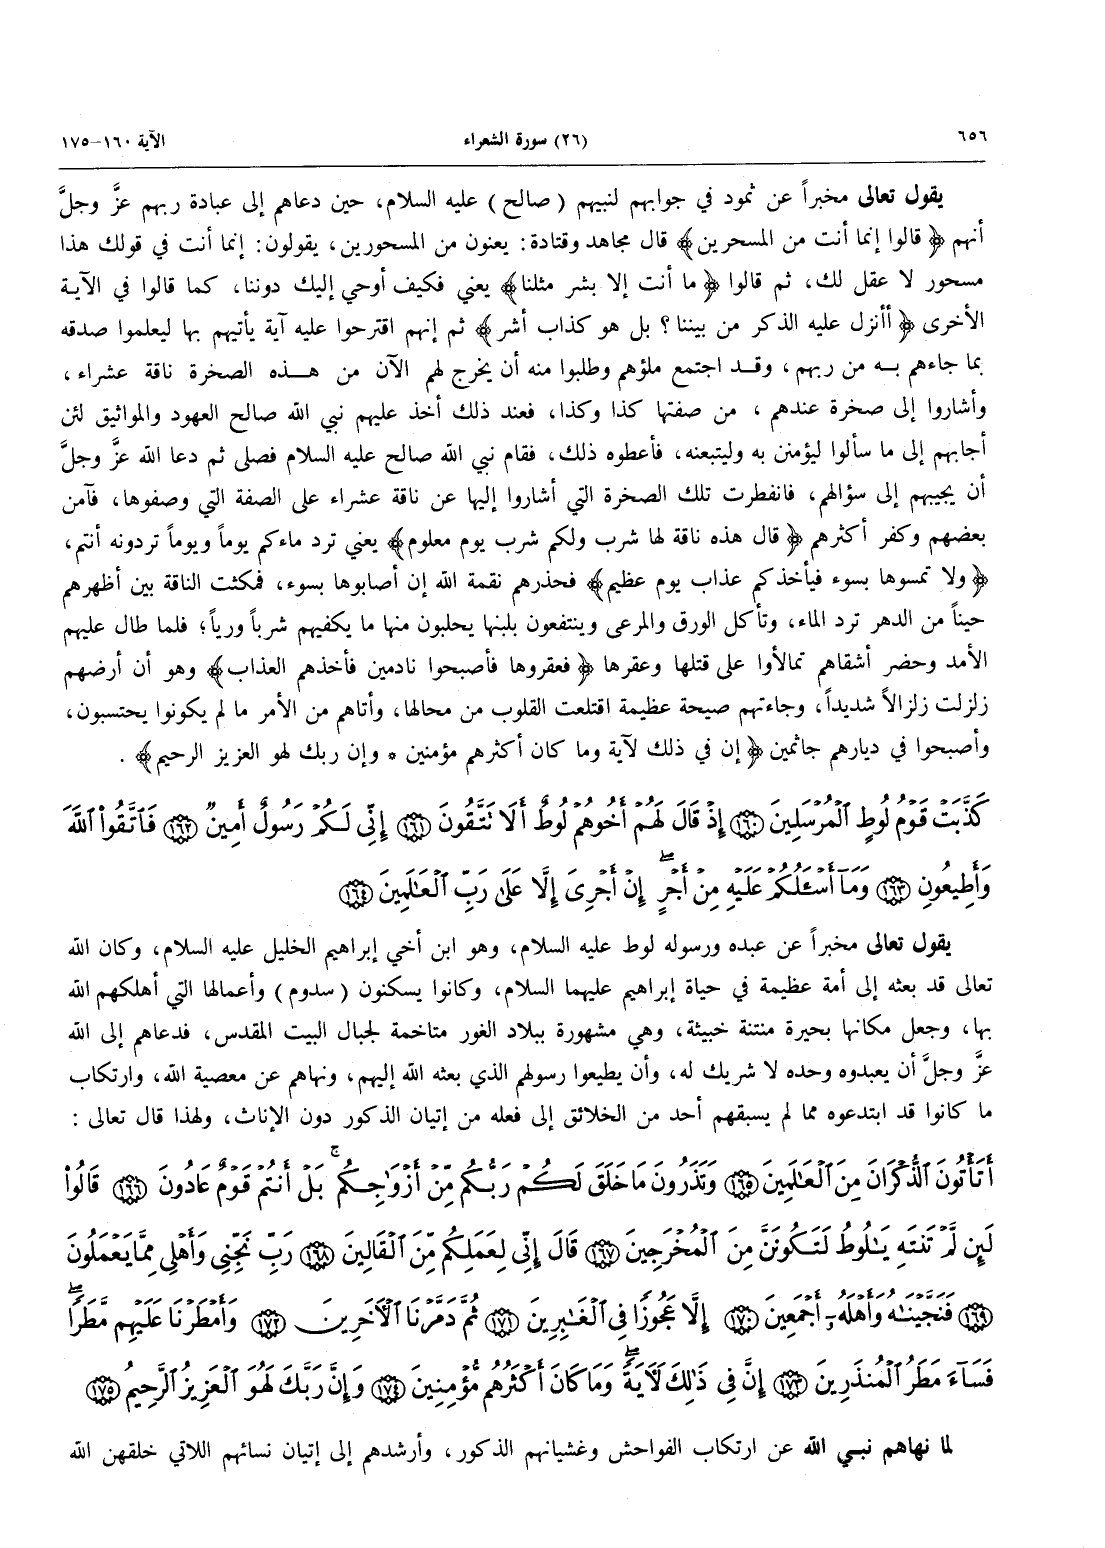 ٦٥٦ (٢٦) سورة الشعراء الآية ١٦٠–١٧٥
يقول تعالى مخبراً عن ثمود في جوابهم لنبيهم ( صالح ) عليه السلام، حين دعاهم إلى عبادة ربهم عزَّ وجلَّ
أنهم ﴿ قالوا إنما أنت من المسحرين﴾ قال مجاهد وقتادة: يعنون من المسحورين، يقولون: إنما أنت في قولك هذا
مسحور لا عقل لك، ثم قالوا ﴿ ما أنت إلا بشر مثلنا﴾ يعني فكيف أوحي إليك دوننا، كما قالوا في الآية
الأخرى ﴿ أأنزل عليه الذكر من بيننا ؟ بل هو كذاب أشر ﴾ ثم إنهم اقترحوا عليه آية يأتيهم بها ليعلموا صدقه
بما جاءهم به من ربهم ، وقد اجتمع ملؤهم وطلبوا منه أن يخرج لهم الآن من هذه الصخرة ناقة عشراء ،
وأشاروا إلى صخرة عندهم ، من صفتها كذا وكذا، فعند ذلك أخذ عليهم نبي الله صالح العهود والمواثيق لئن
أجابهم إلى ما سألوا ليؤمنن به وليتبعنه، فأعطوه ذلك، فقام نبي الله صالح عليه السلام فصلى ثم دعا الله عزَّ وجلَّ
أن يجيبهم إلى سؤالهم، فانفطرت تلك الصخرة التي أشاروا إليها عن ناقة عشراء على الصفة التي وصفوها، فآمن
بعضهم وكفر أكثرهم ﴿ قال هذه ناقة لها شرب ولكم شرب يوم معلوم﴾ يعني ترد ماءكم يوماً ويوماً تردونه أنتم،
﴿ ولا تمسوها بسوء فيأخذكم عذاب يوم عظيم﴾ فحذرهم نقمة الله إن أصابوها بسوء، فمكثت الناقة بين أظهرهم
حيناً من الدهر ترد الماء، وتأكل الورق والمرعى وينتفعون بلبنها يحلبون منها ما يكفيهم شرباً ورياً؛ فلما طال عليهم
الأمد وحضر أشقاهم تمالأوا على قتلها وعقرها ﴿ فعقروها فأصبحوا نادمين فأخذهم العذاب﴾ وهو أن أرضهم
زلزلت زلزالاً شديداً، وجاءتهم صيحة عظيمة اقتلعت القلوب من محالها، وأتاهم من الأمر ما لم يكونوا يحتسبون،
وأصبحوا في ديارهم جاثمين ﴿ إن في ذلك لآية وما كان أكثرهم مؤمنين * وإن ربك لهو العزيز الرحيم﴾ .
كَذَّبَتْ قَوْمُ لُوطٍ ٱلْمُرْسَلِينَ ١٦٠ إِذْ قَالَ لَهُمْ أَخُوهُمْ لُوطٌ أَلَا تَتَّقُونَ ١٦١ إِنِّي لَكُمْ رَسُولٌ أَمِينٌ ١٦٢ فَٱتَّقُوا۟ ٱللَّهَ
وَأَطِيعُونِ ١٦٣ وَمَآ أَسْـَٔلُكُمْ عَلَيْهِ مِنْ أَجْرٍ ۖ إِنْ أَجْرِىَ إِلَّا عَلَىٰ رَبِّ ٱلْعَـٰلَمِينَ ١٦٤
يقول تعالى مخبراً عن عبده ورسوله لوط عليه السلام، وهو ابن أخي إبراهيم الخليل عليه السلام، وكان الله
تعالى قد بعثه إلى أمة عظيمة في حياة إبراهيم عليهما السلام، وكانوا يسكنون ( سدوم ) وأعمالها التي أهلكهم الله
بها، وجعل مكانها بحيرة منتنة خبيثة، وهي مشهورة ببلاد الغور متاخمة لجبال البيت المقدس، فدعاهم إلى الله
عزَّ وجلَّ أن يعبدوه وحده لا شريك له، وأن يطيعوا رسولهم الذي بعثه الله إليهم، ونهاهم عن معصية الله، وارتكاب
ما كانوا قد ابتدعوه مما لم يسبقهم أحد من الخلائق إلى فعله من إتيان الذكور دون الإناث، ولهذا قال تعالى :
أَتَأْتُونَ ٱلذُّكْرَانَ مِنَ ٱلْعَـٰلَمِينَ ١٦٥ وَتَذَرُونَ مَا خَلَقَ لَكُمْ رَبُّكُم مِّنْ أَزْوَٰجِكُم ۚ بَلْ أَنتُمْ قَوْمٌ عَادُونَ ١٦٦ قَالُوا۟
لَئِن لَّمْ تَنتَهِ يَـٰلُوطُ لَتَكُونَنَّ مِنَ ٱلْمُخْرَجِينَ ١٦٧ قَالَ إِنِّي لِعَمَلِكُم مِّنَ ٱلْقَالِينَ ١٦٨ رَبِّ نَجِّنِي وَأَهْلِي مِمَّا يَعْمَلُونَ
١٦٩ فَنَجَّيْنَـٰهُ وَأَهْلَهُۥٓ أَجْمَعِينَ ١٧٠ إِلَّا عَجُوزًا فِي ٱلْغَـٰبِرِينَ ١٧١ ثُمَّ دَمَّرْنَا ٱلْـَٔاخَرِينَ ١٧٢ وَأَمْطَرْنَا عَلَيْهِم مَّطَرًا ۖ
فَسَآءَ مَطَرُ ٱلْمُنذَرِينَ ١٧٣ إِنَّ فِي ذَٰلِكَ لَـَٔايَةً ۖ وَمَا كَانَ أَكْثَرُهُم مُّؤْمِنِينَ ١٧٤ وَإِنَّ رَبَّكَ لَهُوَ ٱلْعَزِيزُ ٱلرَّحِيمُ ١٧٥
لما نهاهم نبي الله عن ارتكاب الفواحش وغشيانهم الذكور، وأرشدهم إلى إتيان نسائهم اللاتي خلقهن الله